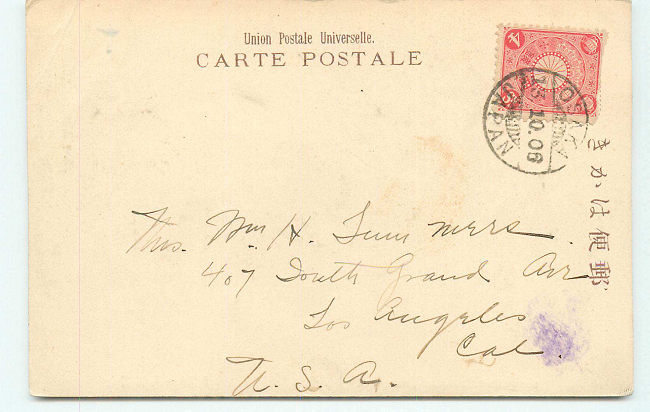 Union Postale Universelle.
CARTE POSTALE
JAPAN
10.06
郵便はかき
Mrs. Wm H. Summers
407 South Grand Ave
Los Angeles
Cal.
U. S. A.